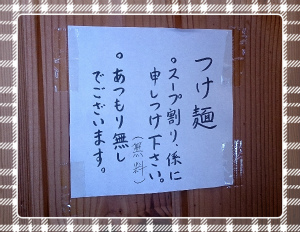 つけ麺
。スープ割り、係に
申しつけ下さい。
(無料)
。あつもり無し
でございます。